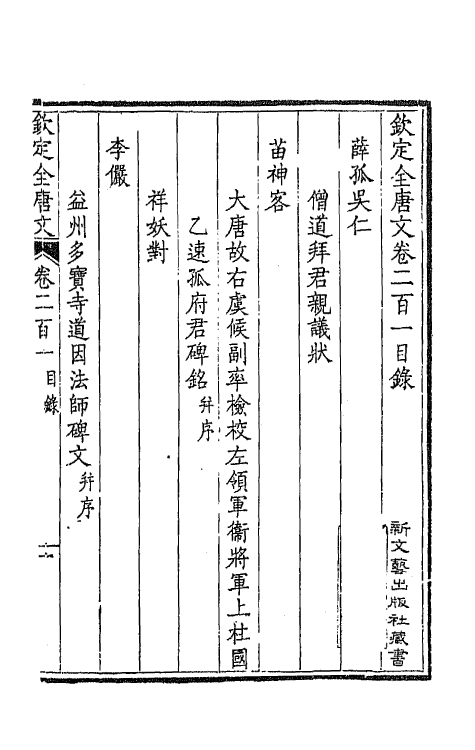 欽定全唐文卷二百一目錄
新文藝出版社藏書
薛孤吳仁
僧道拜君親議狀
苗神客
大唐故右虞候副率檢校左領軍衞將軍上柱國
乙速孤府君碑銘并序
祥妖對
李儼
益州多寶寺道因法師碑文并序
欽定全唐文 卷二百一目錄 一